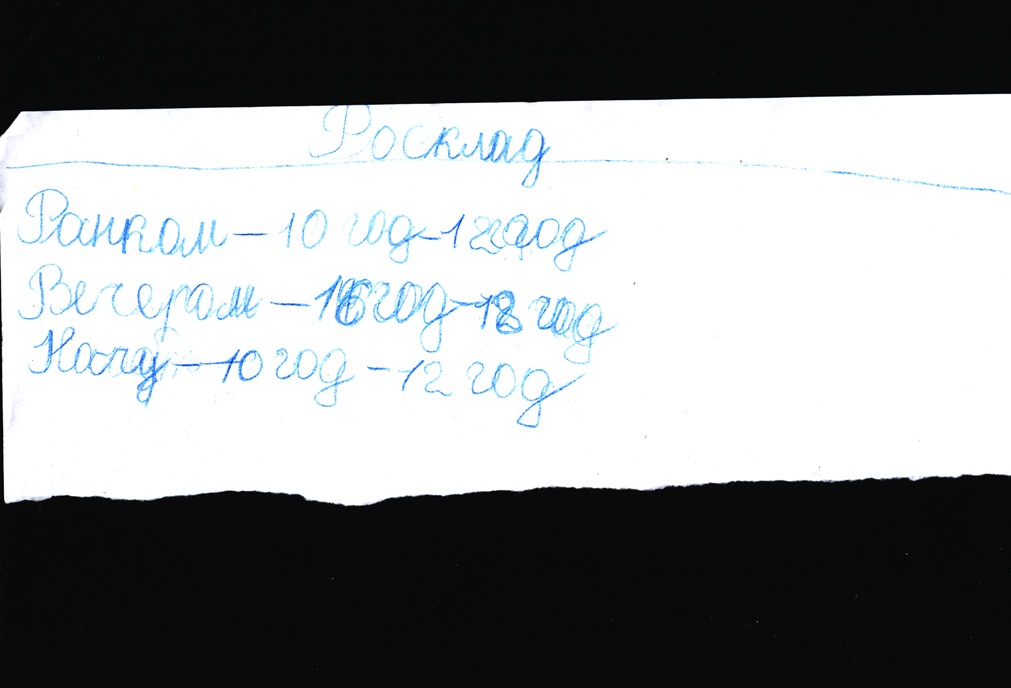 Росклад
Ранком – 10 год – 12 год
Вечером – 16 год – 18 год
Ночу – 10 год – 12 год